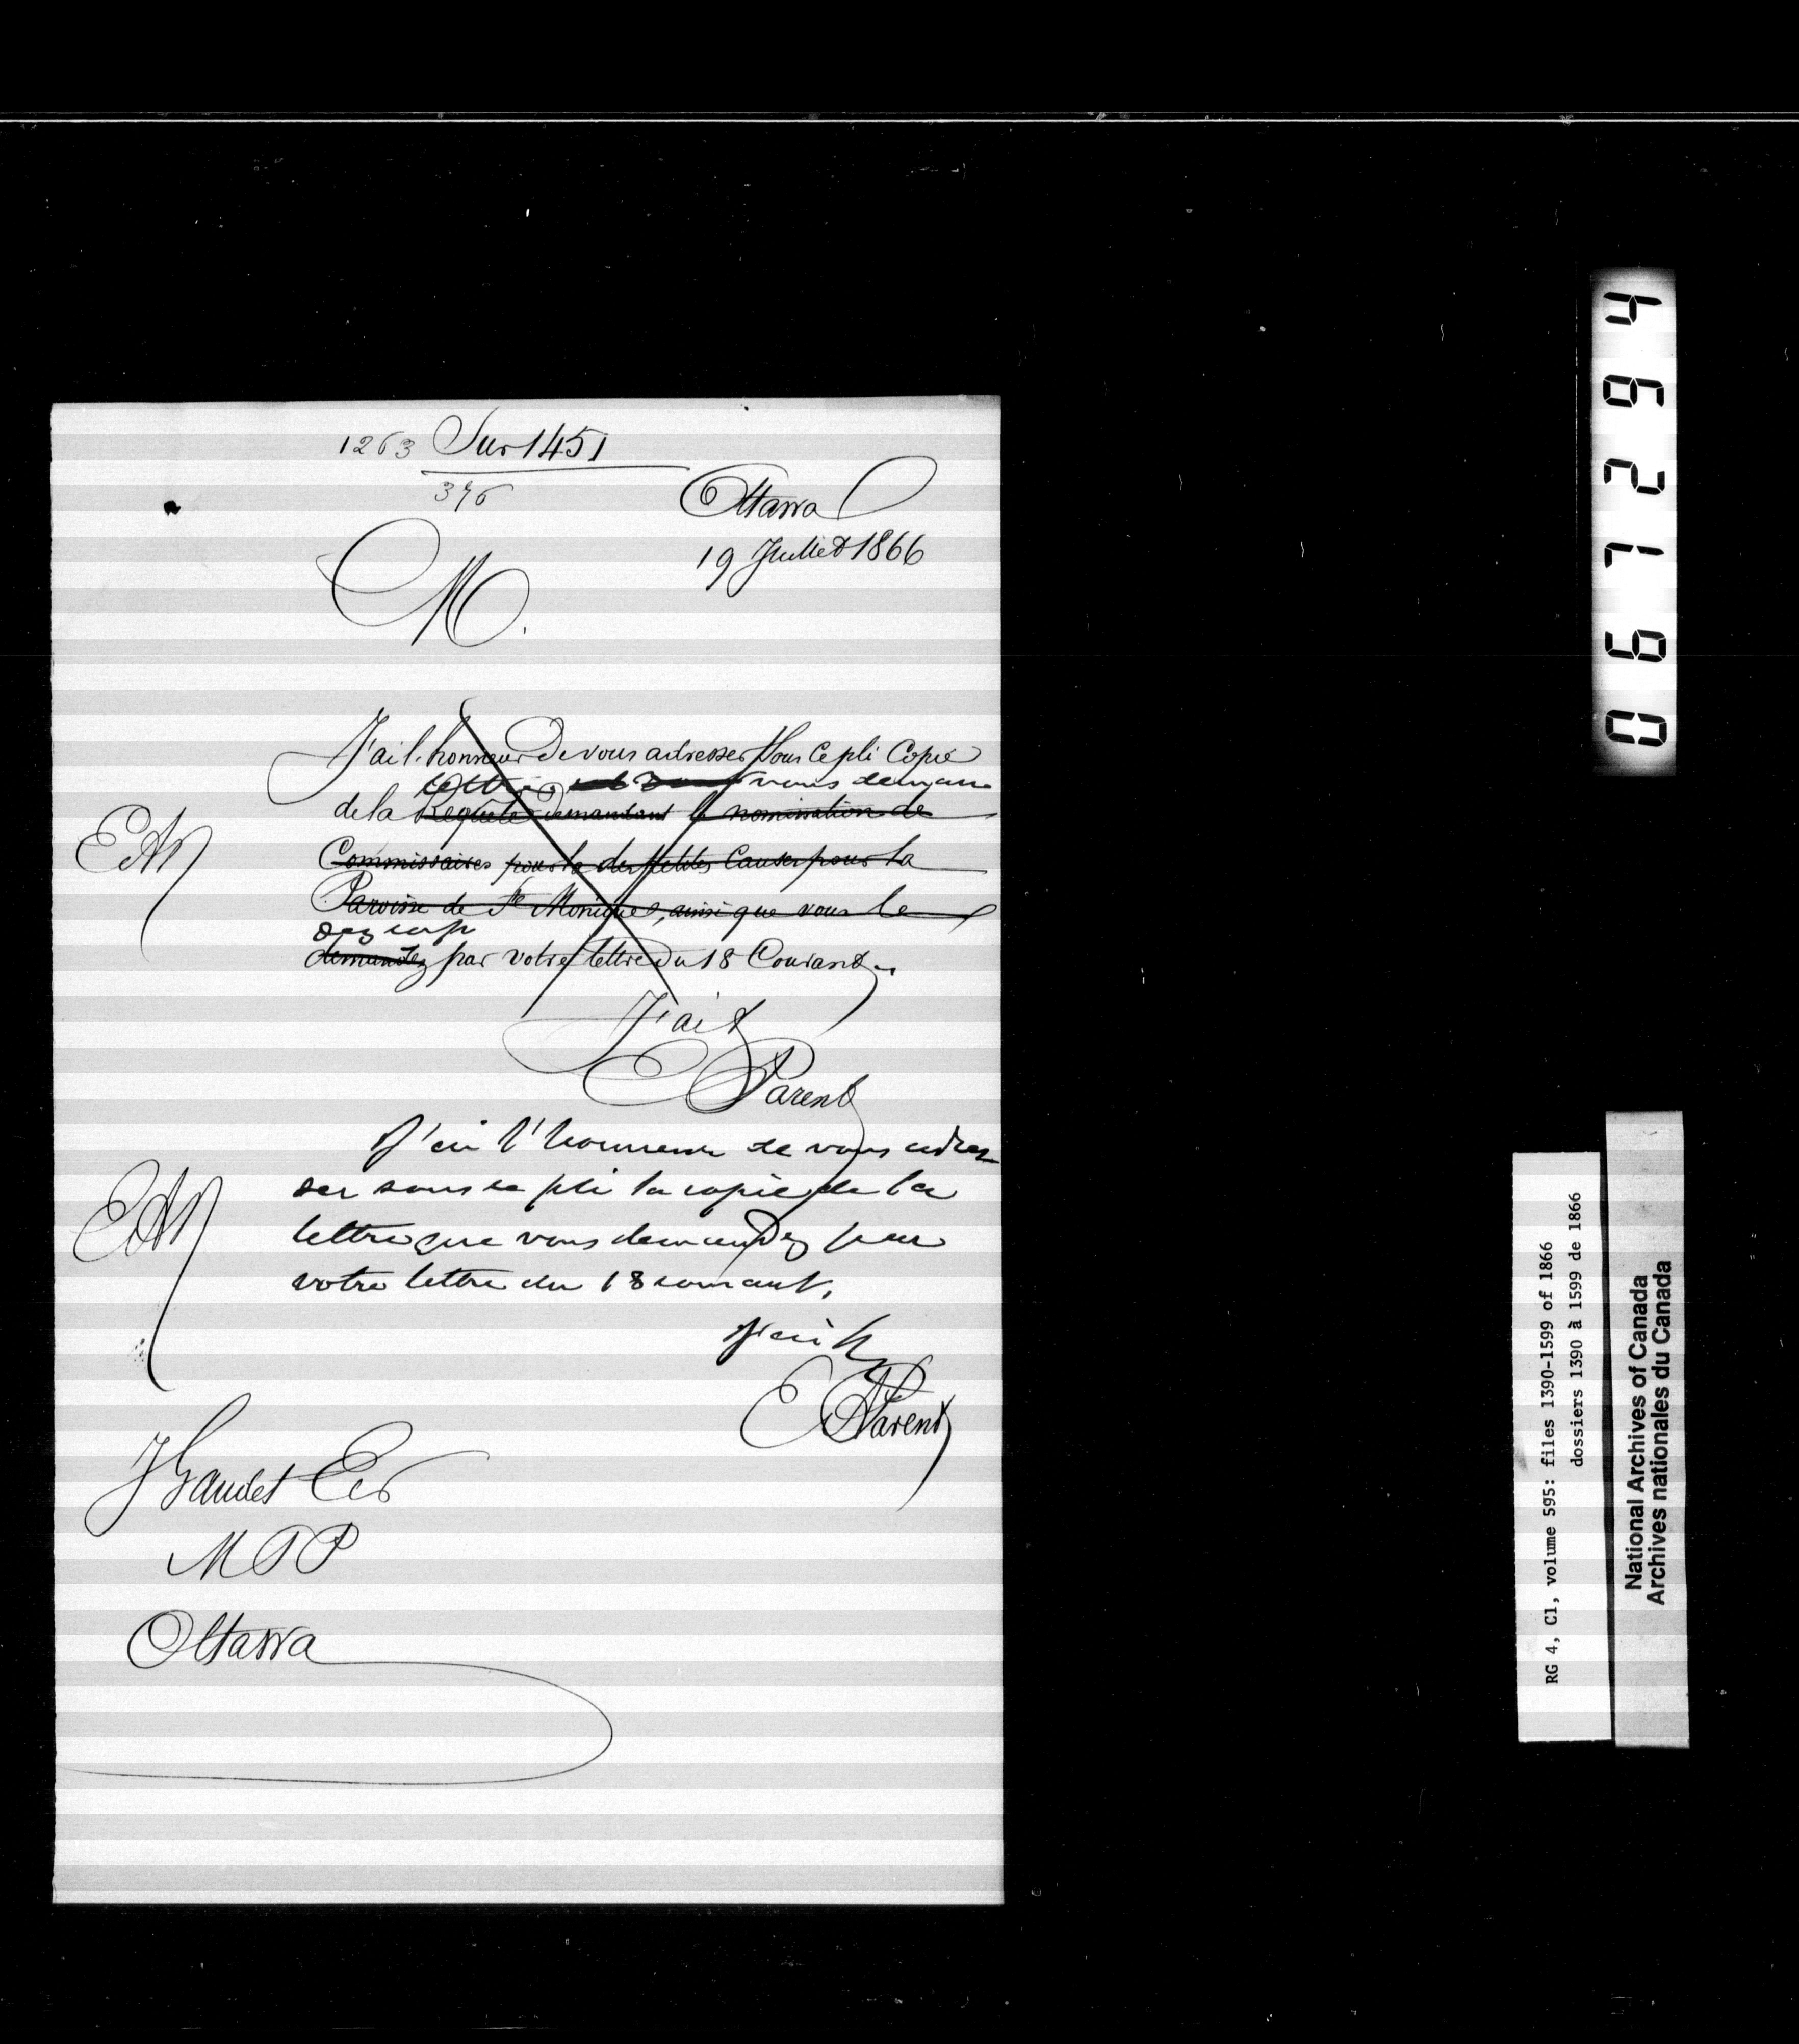 1263 Sur 1451
376
Ottawa
19 Juillet 1866
M.
J'ai l'honneur De vous adresser Sous ce pli Copie
lettre vous deman
de la Requête Demandant la nomination de
Commissaires pour la des petites Causes pour la
Paroisse de Ste Monique, ainsi que vous le
demandez par votre lettre du 18 Courant.
J'ai &
E Parent
J'ai l'honneur de vous adres
ser sous ce pli la copie de la
lettre que vous demandez par
votre lettre du 18 courant.
J'ai &
E Parent
J Gaudet Ecr
MPP
Ottawa
067294
RG 4, C1, volume 595: files 1390-1599 of 1866
dossiers 1390 à 1599 de 1866
National Archives of Canada
Archives nationales du Canada